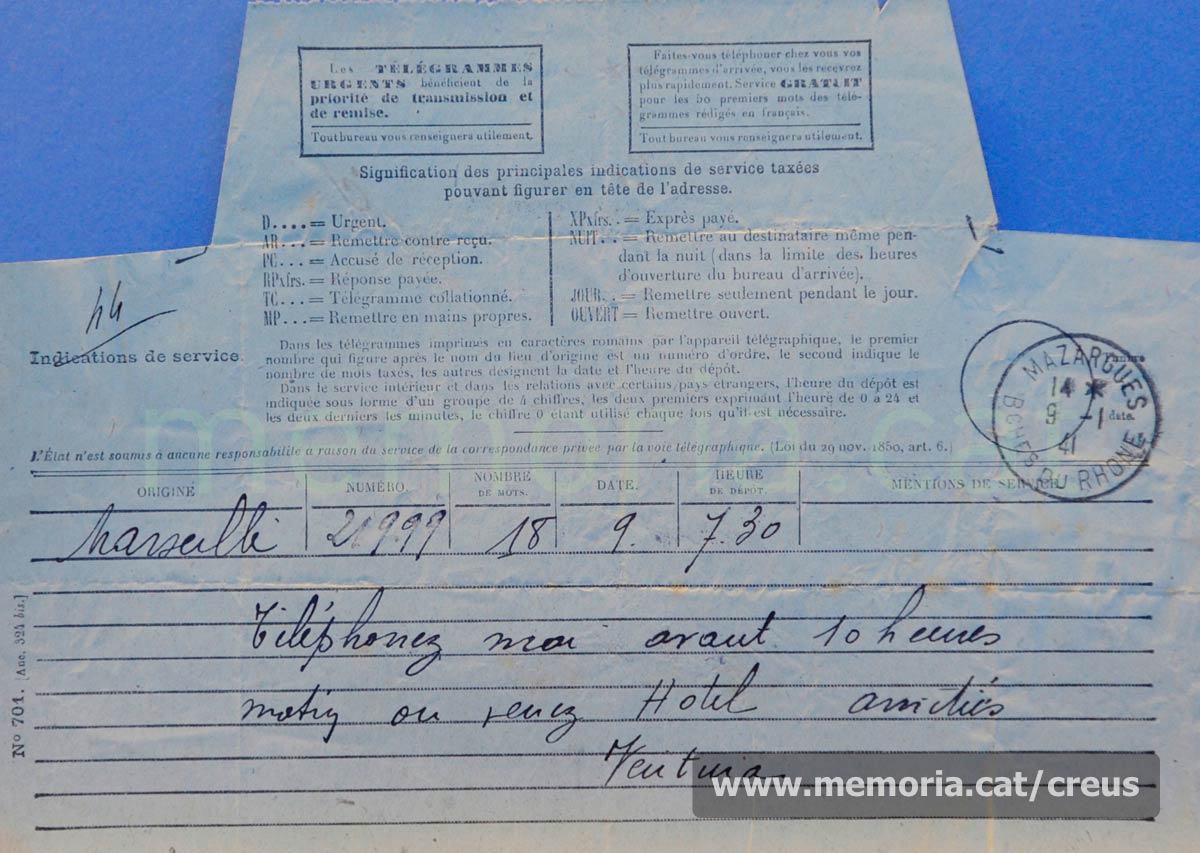 Les TÉLÉGRAMMES
URGENTS bénéficient de la
priorité de transmission et
de remise.
Tout bureau vous renseignera utilement.
Faites-vous téléphoner chez vous vos
télégrammes d'arrivée, vous les recevrez
plus rapidement. Service GRATUIT
pour les 50 premiers mots des télé-
grammes rédigés en français.
Tout bureau vous renseignera utilement.
Signification des principales indications de service taxées
pouvant figurer en tête de l'adresse.
D.... = Urgent.
AR... = Remettre contre reçu.
PC... = Accusé de réception.
RPxfrs. = Réponse payée.
TC... = Télégramme collationné.
MP... = Remettre en mains propres.
XPxfrs. = Exprès payé.
NUIT.. = Remettre au destinataire même pen-
dant la nuit (dans la limite des heures
d'ouverture du bureau d'arrivée).
JOUR.. = Remettre seulement pendant le jour.
OUVERT = Remettre ouvert.
44
Indications de service.
Dans les télégrammes imprimés en caractères romains par l'appareil télégraphique, le premier
nombre qui figure après le nom du lieu d'origine est un numéro d'ordre, le second indique le
nombre de mots taxés, les autres désignent la date et l'heure du dépôt.
Dans le service intérieur et dans les relations avec certains pays étrangers, l'heure du dépôt est
indiquée sous forme d'un groupe de 4 chiffres, les deux premiers exprimant l'heure de 0 à 24 et
les deux derniers les minutes, le chiffre 0 étant utilisé chaque fois qu'il est nécessaire.
Timbre
date.
MAZARGUES
14 *
9 -1
41
BCHES DU RHONE
memoria.cat
L'État n'est soumis à aucune responsabilité à raison du service de la correspondance privée par la voie télégraphique. (Loi du 29 nov. 1850, art. 6.)
ORIGINE NUMÉRO. NOMBRE DE MOTS. DATE. HEURE DE DÉPÔT. MENTIONS DE SERVICE.
Marseille 21999 18 9. 7.30
Téléphonez moi avant 10 heures
matin ou venez Hotel amitiés
Ventura
N° 701. [Anc. 324 bis.]
www.memoria.cat/creus